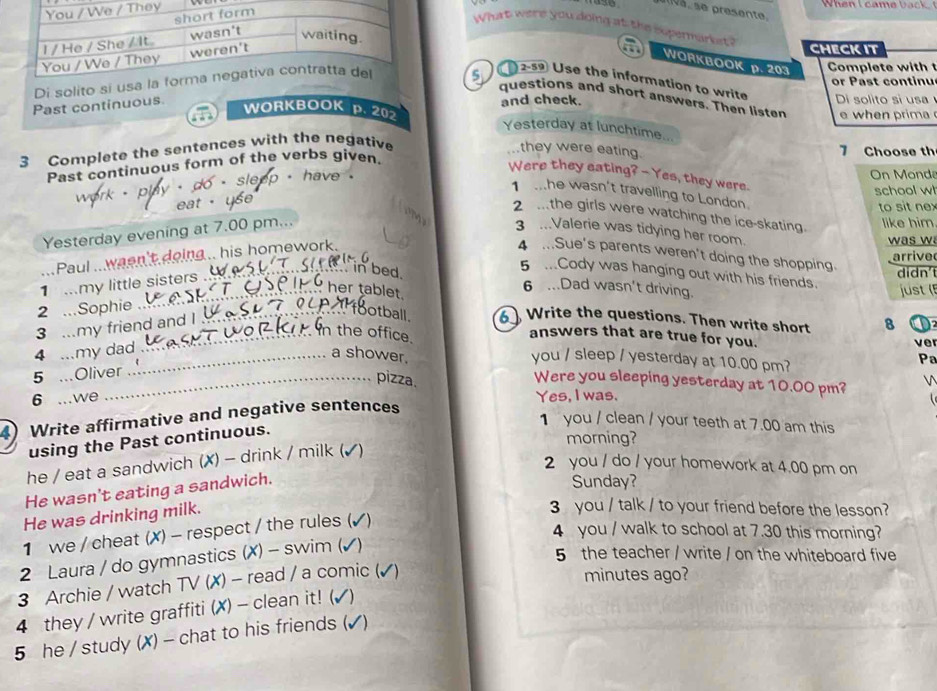 You / We / They
short form
I / He / She / It
wasn't
waiting.
You / We / They
weren't
Di solito si usa la forma negativa contratta del
Past continuous.
WORKBOOK p. 202
3 Complete the sentences with the negative
Past continuous form of the verbs given.
work • play • do • sleep • have •
eat • use
Yesterday evening at 7.00 pm...
...Paul ...wasn't doing... his homework.
1 ...my little sisters WASN'T SLEEPING in bed.
2 ...Sophie WASN'T USEING her tablet.
3 ...my friend and I WASN'T PLAYING football.
4 ...my dad WASN'T WORKING in the office.
5 ...Oliver a shower.
6 ...we pizza.
4 Write affirmative and negative sentences
using the Past continuous.
he / eat a sandwich (✗) – drink / milk (✓)
He wasn't eating a sandwich.
He was drinking milk.
1 we / cheat (✗) – respect / the rules (✓)
2 Laura / do gymnastics (✗) – swim (✓)
3 Archie / watch TV (✗) – read / a comic (✓)
4 they / write graffiti (✗) – clean it! (✓)
5 he / study (✗) – chat to his friends (✓)
se presente,
What were you doing at the supermarket?
WORKBOOK p. 203
5 2-59 Use the information to write
questions and short answers. Then listen
and check.
Yesterday at lunchtime...
...they were eating.
Were they eating? – Yes, they were.
1 ...he wasn't travelling to London.
2 ...the girls were watching the ice-skating.
3 ...Valerie was tidying her room.
4 ...Sue's parents weren't doing the shopping.
5 ...Cody was hanging out with his friends.
6 ...Dad wasn't driving.
6 Write the questions. Then write short
answers that are true for you.
you / sleep / yesterday at 10.00 pm?
Were you sleeping yesterday at 10.00 pm?
Yes, I was.
1 you / clean / your teeth at 7.00 am this
morning?
2 you / do / your homework at 4.00 pm on
Sunday?
3 you / talk / to your friend before the lesson?
4 you / walk to school at 7.30 this morning?
5 the teacher / write / on the whiteboard five
minutes ago?
When I came back,
CHECK IT
Complete with t
or Past continu
Di solito si usa
e when prima
7 Choose th
On Monda
school wh
to sit nex
like him.
was wa
arrived
didn't
just (
8 2
ver
Pa